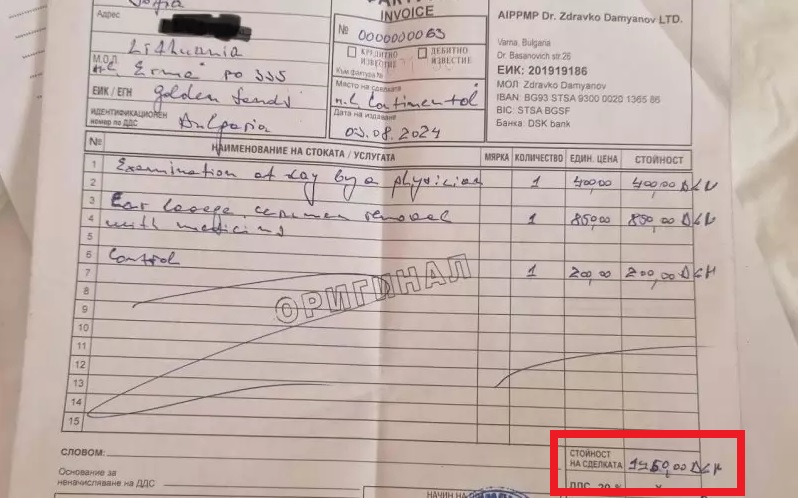 София
INVOICE
Адрес
№ 0000000063
Lithuania
КРЕДИТНО ИЗВЕСТИЕ
ДЕБИТНО ИЗВЕСТИЕ
Към фактура №
М.О.Л.
Място на сделката
ЕИК / ЕГН Golden Sands
Дата на издаване
ИДЕНТИФИКАЦИОНЕН номер по ДДС
03.08.2024
AIPPMP Dr. Zdravko Damyanov LTD.
Varna, Bulgaria
Dr. Basanovich str.26
ЕИК: 201919186
МОЛ Zdravko Damyanov
IBAN: BG93 STSA 9300 0020 1365 86
BIC: STSA BGSF
Банка: DSK bank
№ НАИМЕНОВАНИЕ НА СТОКАТА / УСЛУГАТА МЯРКА КОЛИЧЕСТВО ЕДИН. ЦЕНА СТОЙНОСТ
1 Examination at day by a physician
2 1 400,00 400,00
3
4 with medicins 1 850,00 850,00
5
6 Control
7 1 200,00 200,00
8
ОРИГИНАЛ
9
10
11
12
13
14
15
СЛОВОМ:
СТОЙНОСТ НА СДЕЛКАТА
Основание за
неначисляване на ДДС
НАЧИН НА
ДДС 20 %